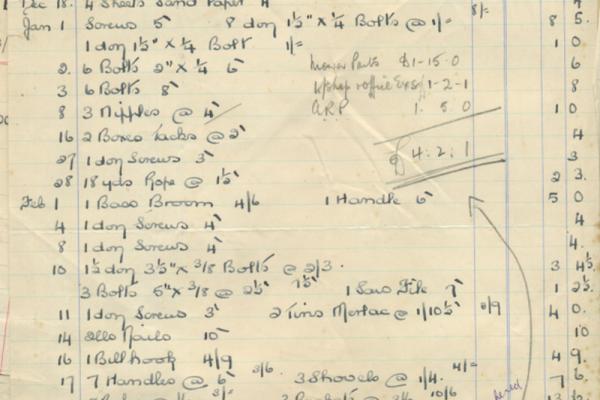 Dec 18. 4 Sheets Sand Paper 4
Jan 1 Screws 5" 8 doz 1½" x ¼ Bolts @ 1/= 8/= 8 5.
1 doz 1½" x ¼ Bolt 1/= 1 0
2. 6 Bolts 2" x ¼ 6" 6
Mower Parts £1-15-0
3 6 Bolts 8" 8
W/shop + office Exs 1-2-1
8 3 Nipples @ 4" 1 0
A.R.P 1. 5 0
16 2 Boxes Tacks @ 2" 4
£ 4:2:1
27 1 doz Screws 3" 3
28 18 yds Rope @ 1½" 2 3.
Feb 1 1 Bass Broom 4/6 1 Handle 6" 5 0
4 1 doz Screws 4" 4
8 1 doz Screws 4" 4.
10 1½ doz 3½" x 3/8 Bolts @ 2/3. 3 4½.
3 Bolts 5" x 3/8 @ 2½" 7½" 1 Saw File 7" 1 2½.
11 1 doz Screws 3" 2 Tins @ 1/10½" 3/9 4 0.
14 2lbs Nails 10" 10
16 1 Billhook 4/9 4 9.
17 7 Handles @ 6" 3/6. 3 Shovels @ 1/4. 4/= 7 6.